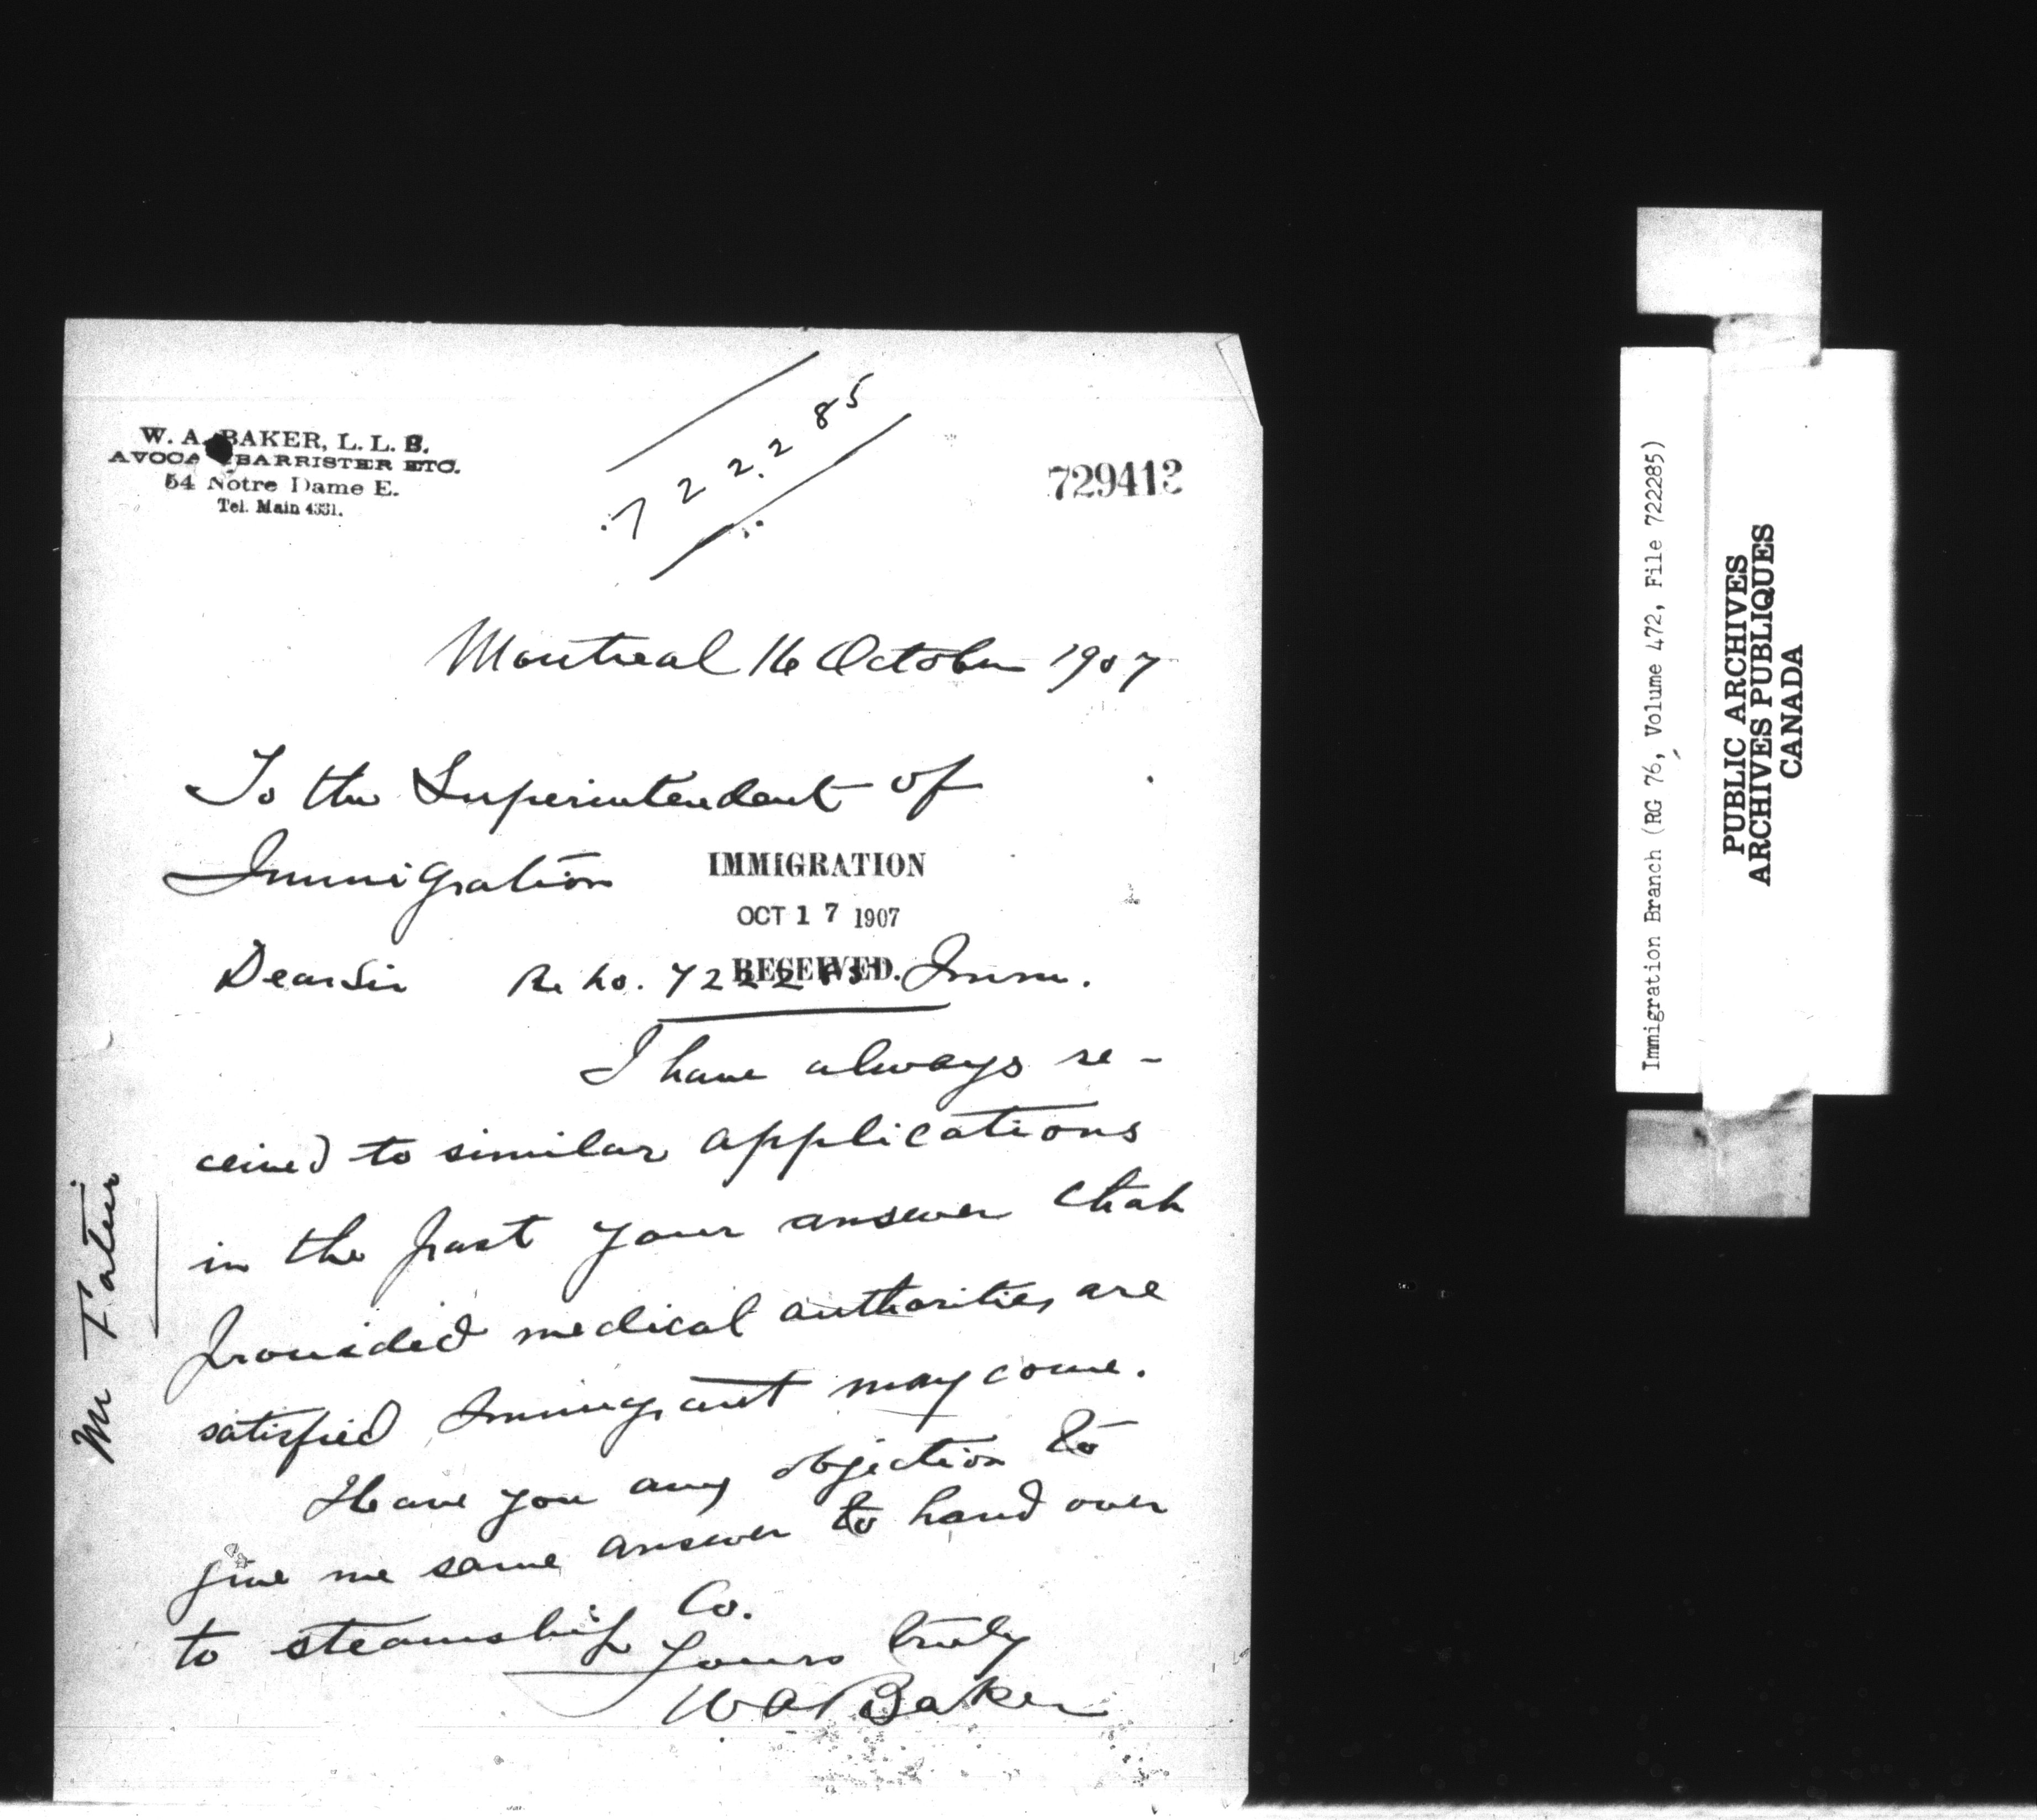 W. A. BAKER, L. L. B.
AVOCA BARRISTER ETC.
54 Notre Dame E.
Tel. Main 4331.
722285
729413
Montreal 16 October 1907
To the Superintendent of
Immigration
IMMIGRATION
OCT 17 1907
RECEIVED.
Dear Sir Re No. 722285 Imm.
I have always re-
ceived to similar applications
in the past your answer that
provided medical authorities are
satisfied Immigrant may come.
Have you any objection to
give me same answer to hand over
to steamship Co.
Yours truly
W A Baker
Mr
Immigration Branch (RG 76, Volume 472, File 722285)
PUBLIC ARCHIVES
ARCHIVES PUBLIQUES
CANADA